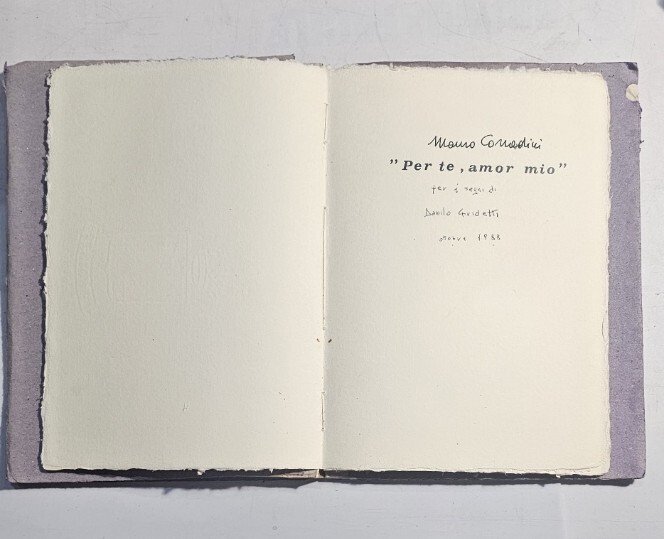 Mauro Corradini
"Per te, amor mio"
per i segni di
Danilo Guidetti
1988